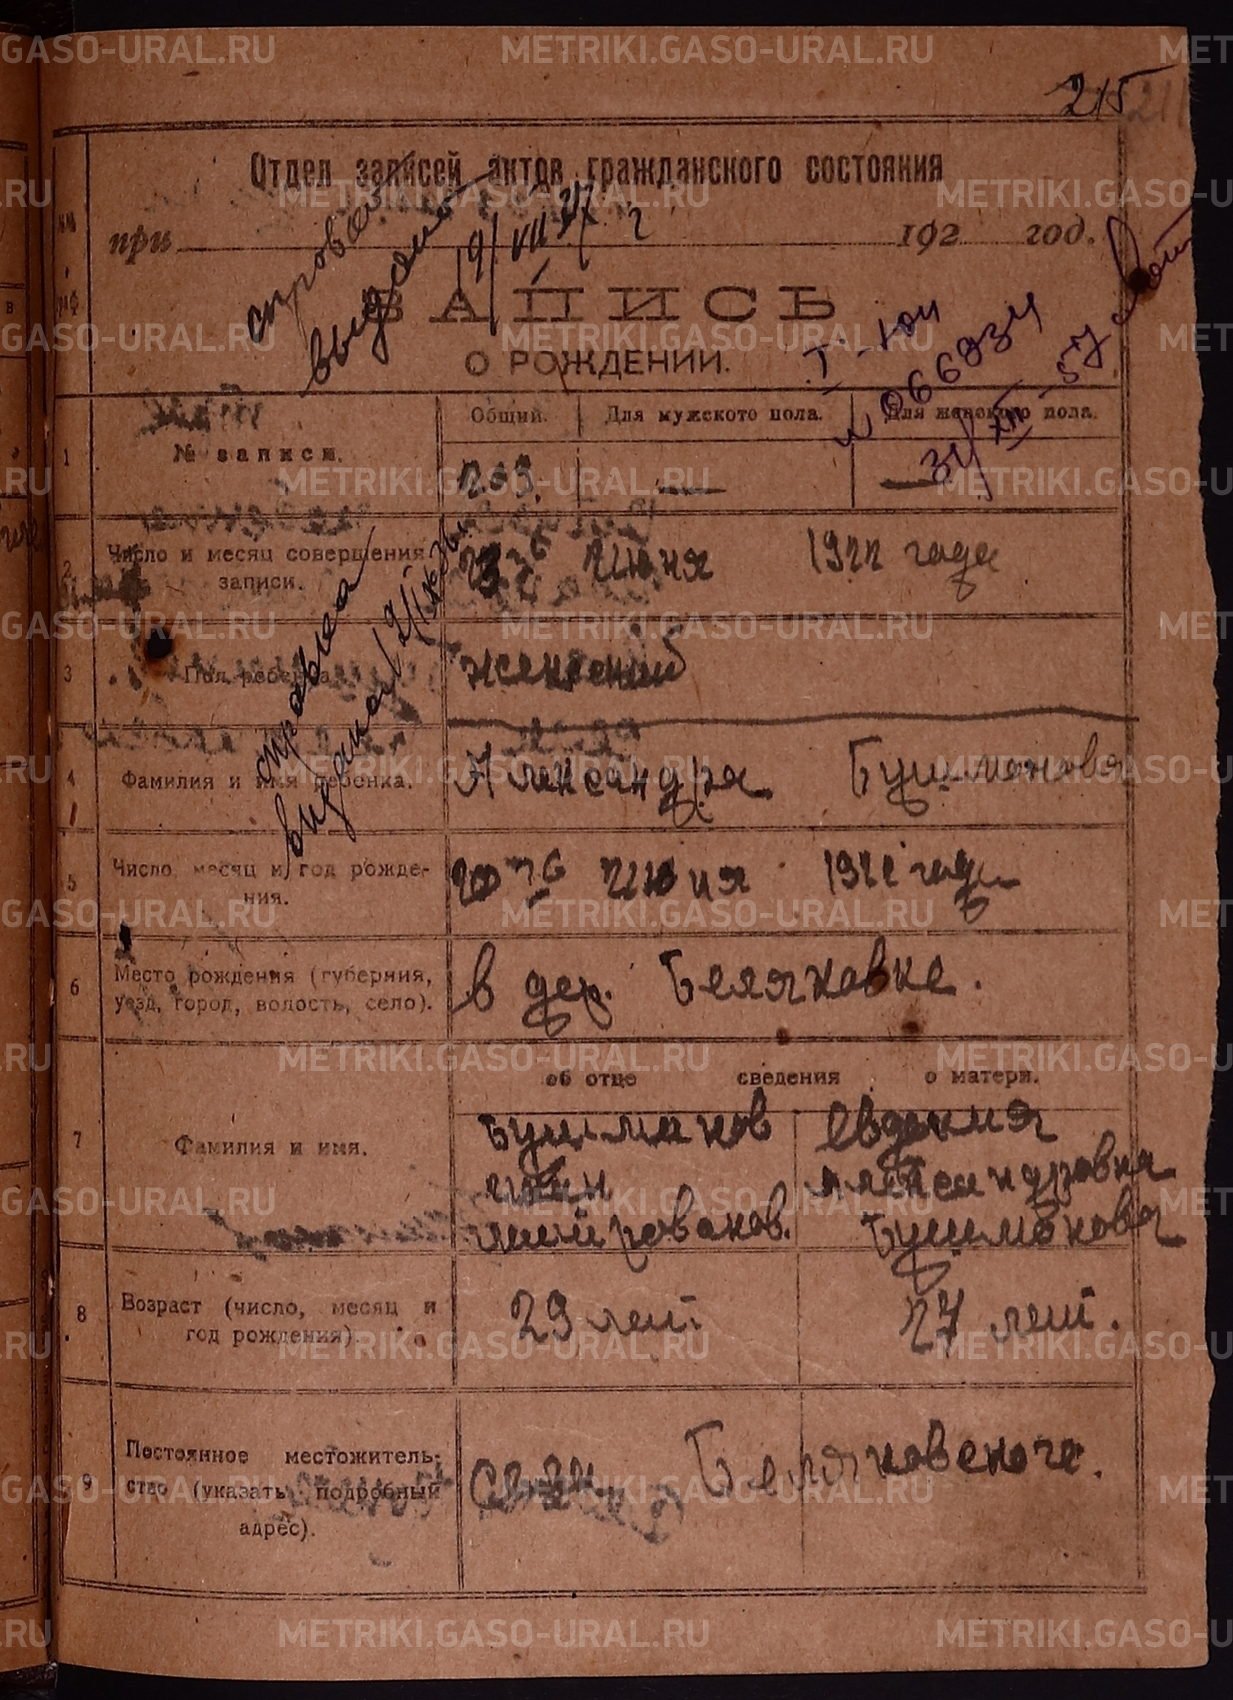 215
Отдел записей актов гражданского состояния
при 192 год.
справка
выдана 19/VII 37 г
ЗАПИСЬ
О РОЖДЕНИИ.
31/XII-57
№ записи.
Общий.
Для мужского пола.
Для женского пола.
1
203.
2
Число и месяц совершения
записи.
23 Июня 1922 года
справка
выдана
3
Пол ребенка.
женский
4
Фамилия и имя ребенка.
Александра Бушманова
5
Число месяц и год рожде-
ния.
20го Июня 1922 года
6
Место рождения (губерния,
уезд, город, волость, село).
в дер. Беляковке.
об отце сведения о матери.
7
Фамилия и имя.
Бушманов
Евдокия
Александровна
Бушманова
8
Возраст (число, месяц и
год рождения).
29 лет.
27 лет.
9
Постоянное местожитель-
ство (указать подробный
адрес).
Беляковского.
METRIKI.GASO-URAL.RU